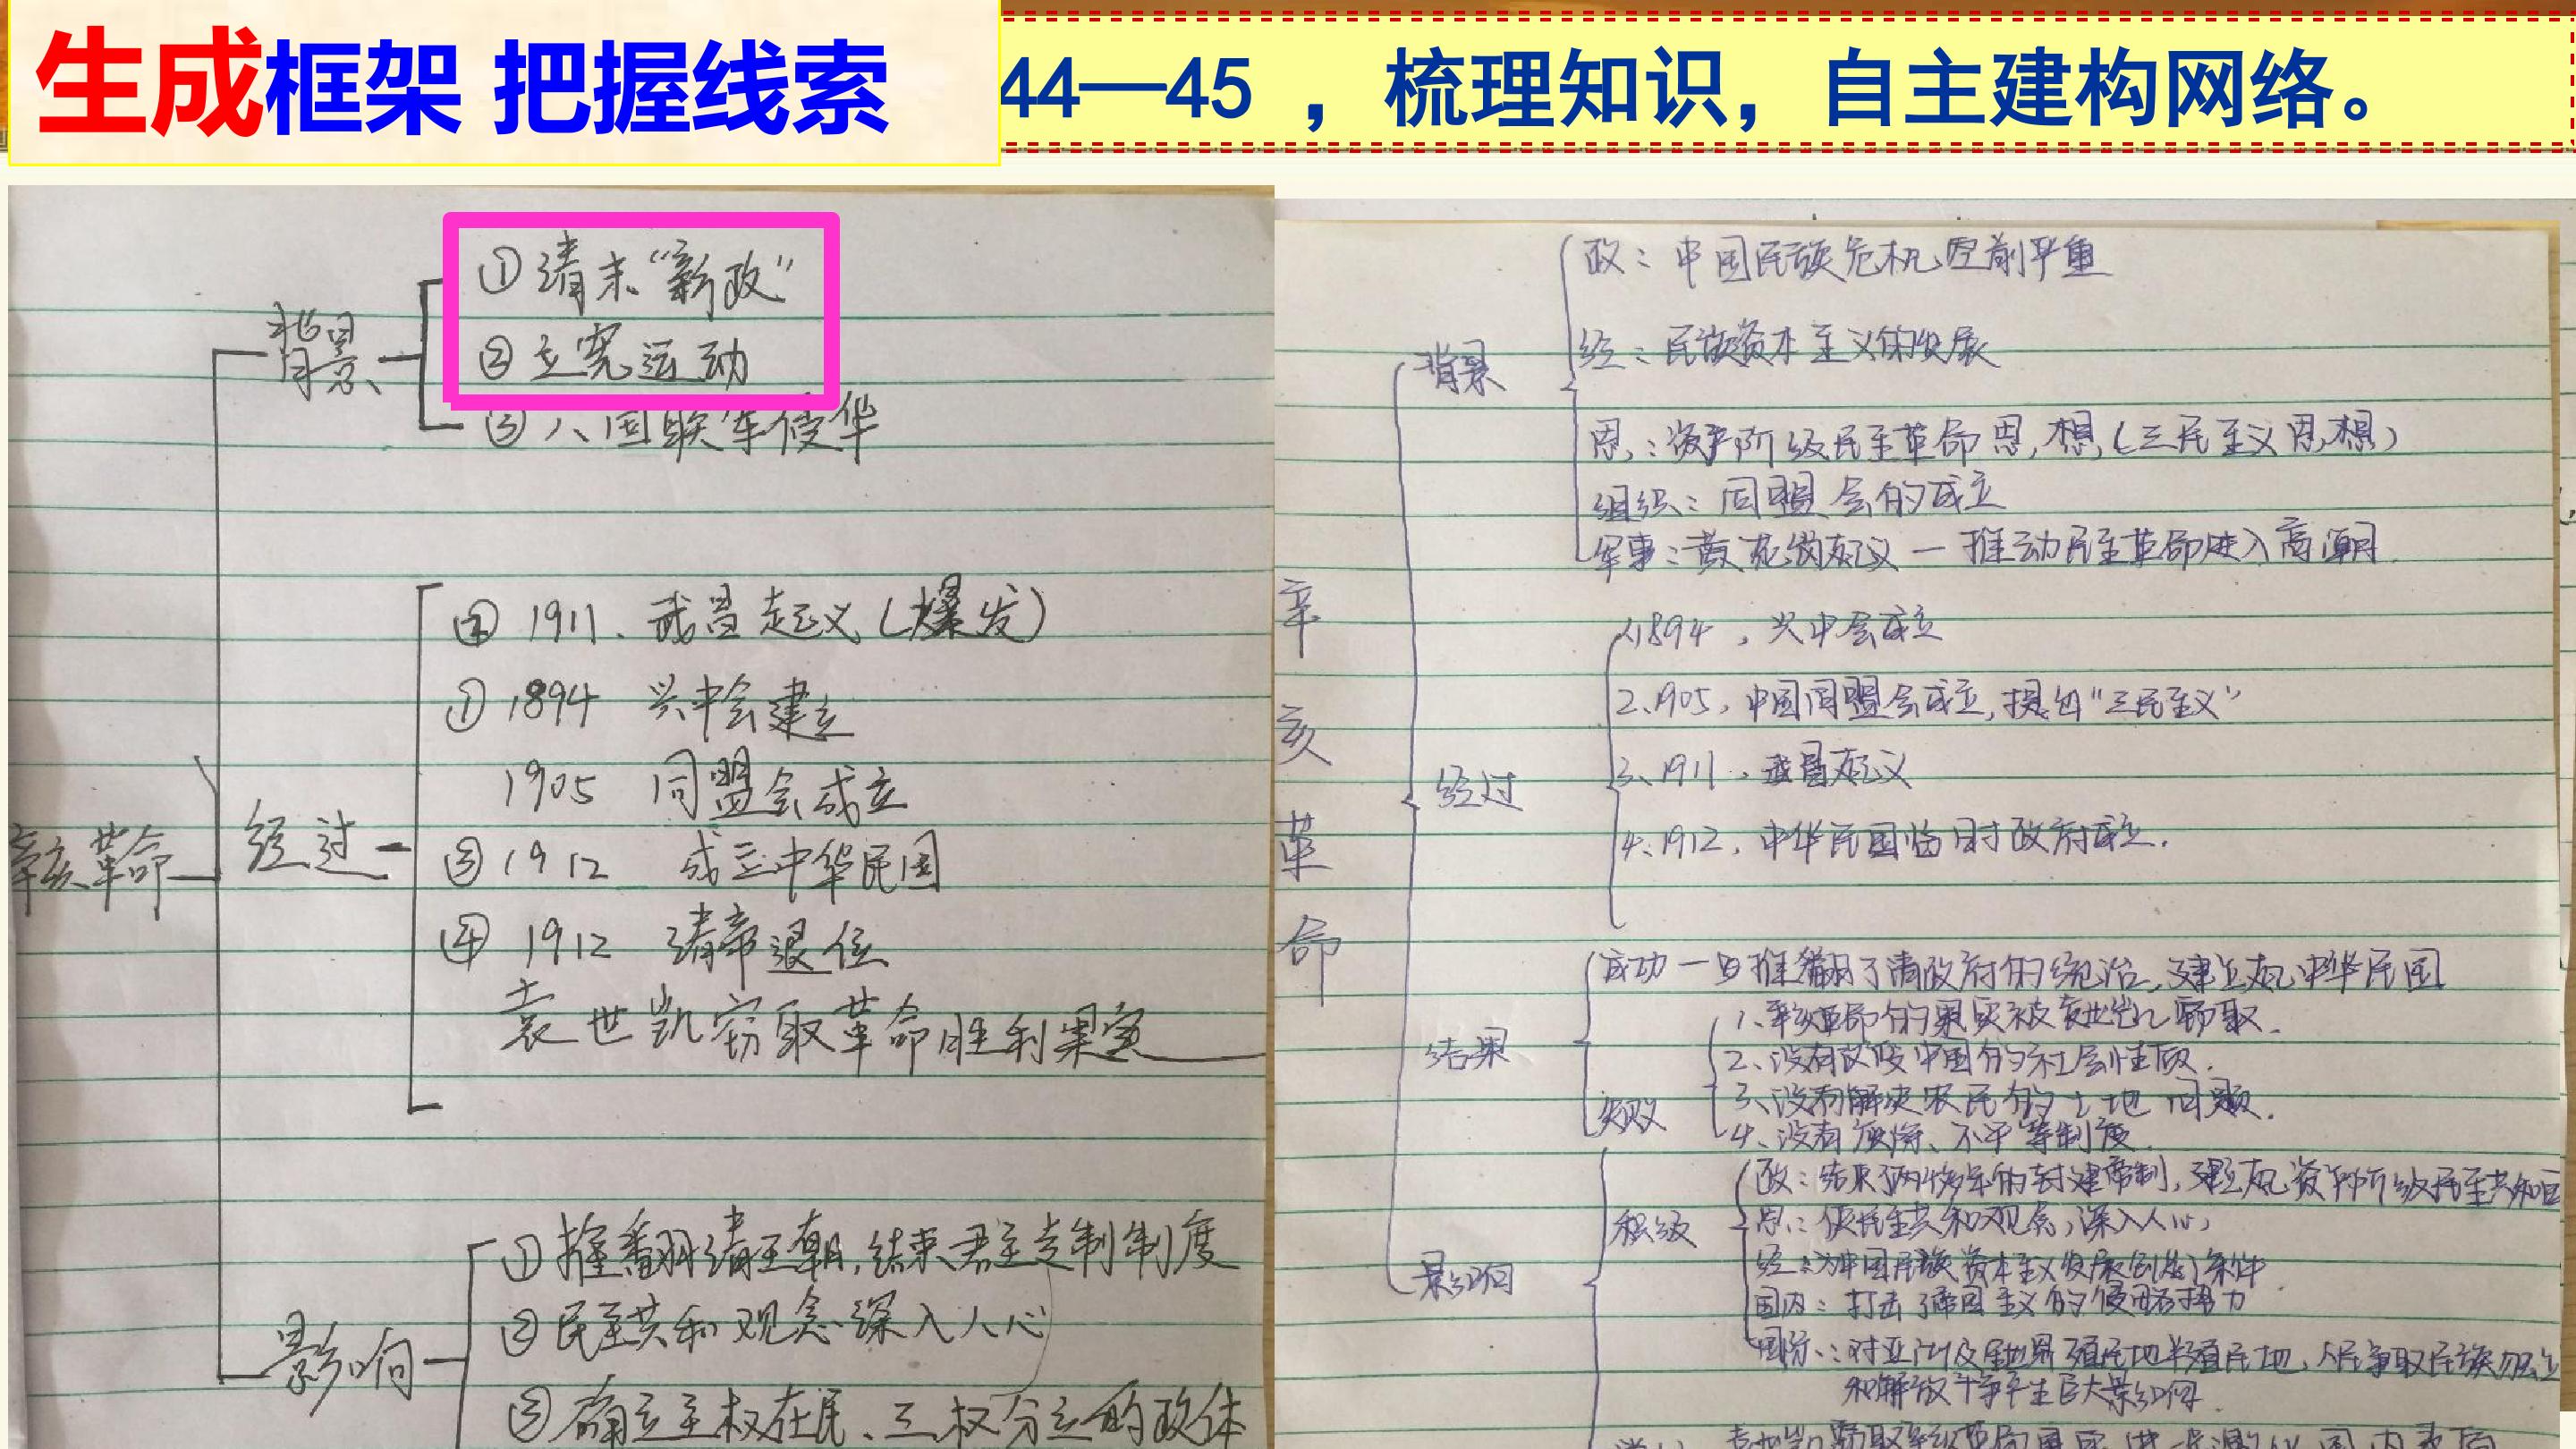 生成框架 把握线索
44—45 ，梳理知识，自主建构网络。
辛亥革命
背景
①清末“新政”
②立宪运动
③八国联军侵华
经过
② 1911、武昌起义（爆发）
① 1894 兴中会建立
1905 同盟会成立
③ 1912 成立中华民国
④ 1912 清帝退位
袁世凯窃取革命胜利果实
影响
①推翻清王朝，结束君主专制制度
②民主共和观念深入人心
③确立主权在民、三权分立的政体
辛亥革命
背景
政：中国民族危机空前严重
经：民族资本主义的发展
思：资产阶级民主革命思想（三民主义思想）
组织：同盟会的成立
军事：黄花岗起义—推动民主革命进入高潮
经过
1、1894，兴中会成立
2、1905，中国同盟会成立，提出“三民主义”
3、1911、武昌起义
4、1912，中华民国临时政府成立.
结果
成功—推翻了清政府的统治，建立起中华民国
失败
1、辛亥革命的果实被袁世凯窃取.
2、没有改变中国的社会性质.
3、没有解决农民的土地问题.
4、没有废除、不平等制度.
影响
积极
政：结束了两千多年的封建帝制，建立起资产阶级民主共和国
思：使民主共和观念，深入人心，
经：为中国民族资本主义发展创造了条件
国内：打击了帝国主义的侵略势力
国际：对亚洲及全世界殖民地半殖民地，人民争取民族独立
和解放斗争产生巨大影响.